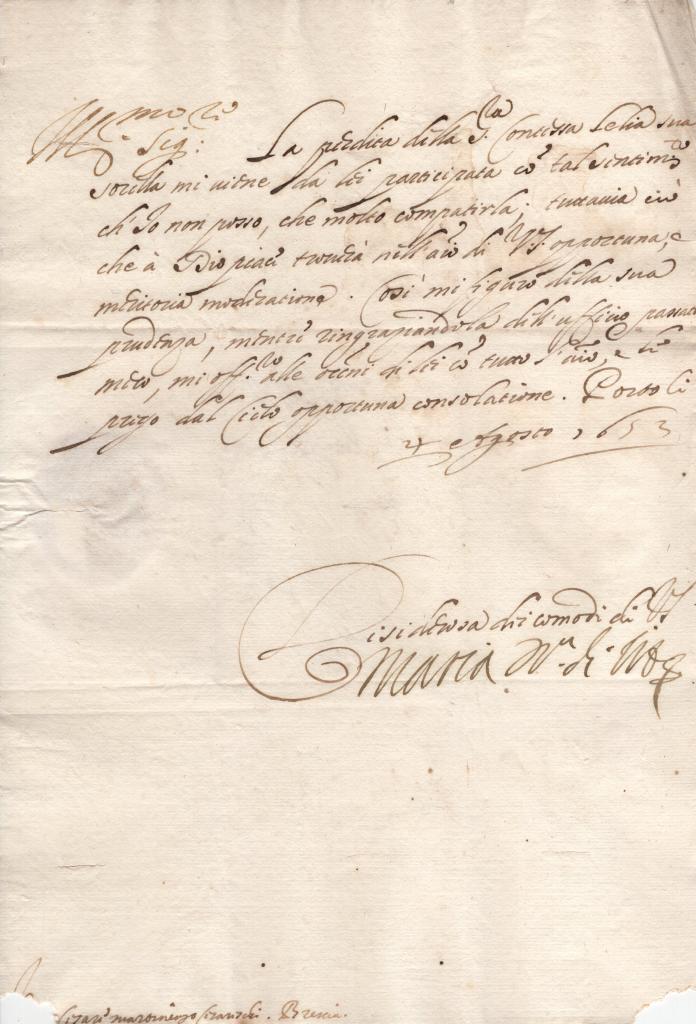 Ill.mo Sig.re La perdita della S.ra Contessa Lelia sua
sorella mi viene da lei participata cō tal sentim.to
ch'Io non posso, che molto compatirla; tuttavia ciò
che à Dio piace trovarà nell'aīo di V.S. opportuna, e
meritoria moderatione. Così mi figuro della sua
prudenza, mentre ringratiandola dell'ufficio passato
meco, mi off.ro alle occ.ni di lei cō tutto l'aīo, e le
prego dal Cielo opportuna consolatione. Portoli
4 Agosto 1653
Desiderosa dei comodi di V.S.
Maria
Cesare Martinengo Brescia.